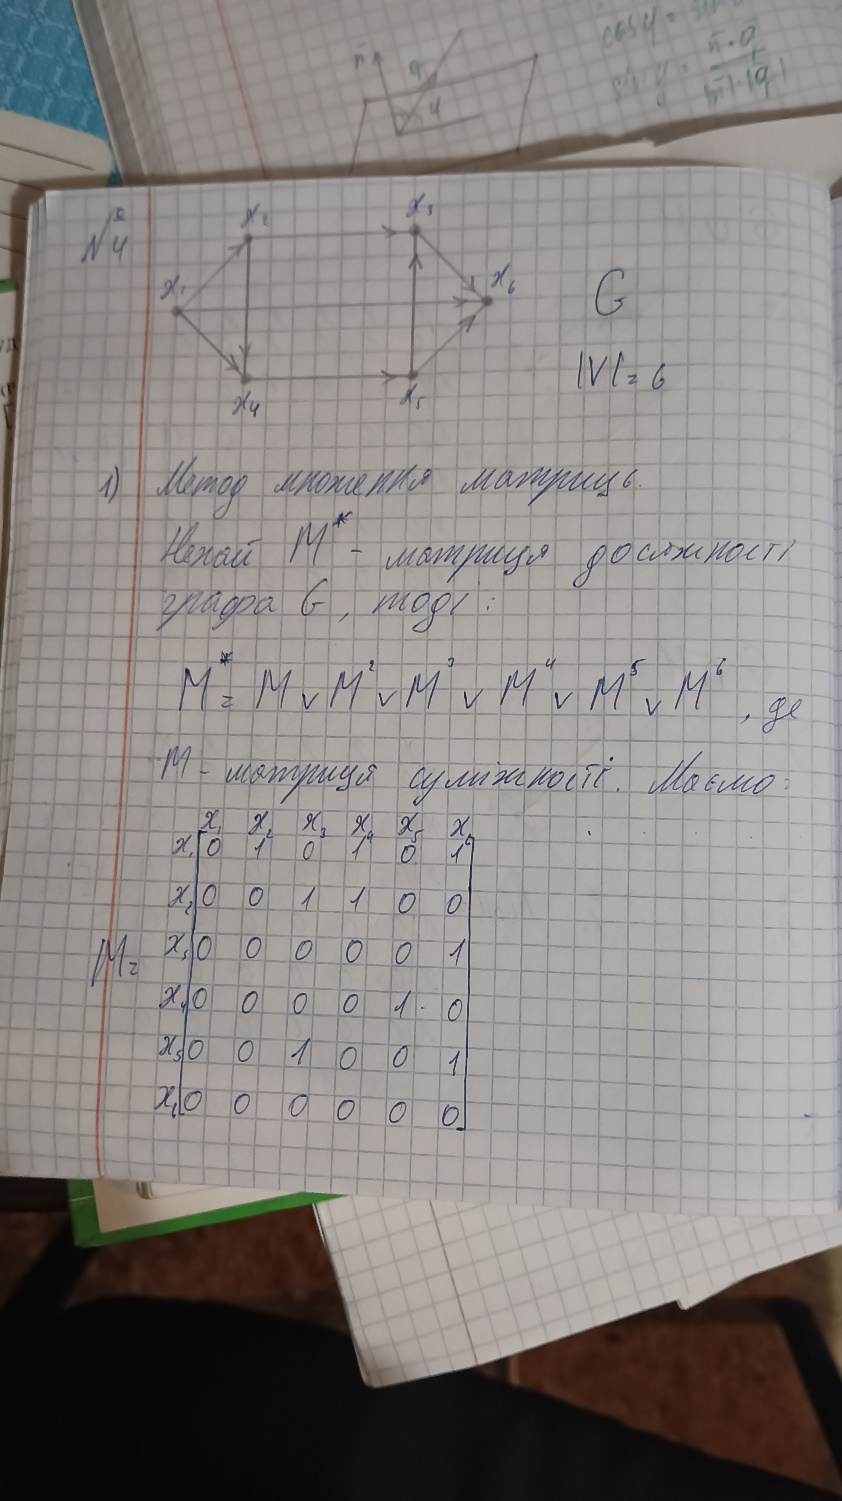 cos φ =
sin φ = n̄·ā / |n̄|·|ā|
n̄
φ
№4
x₂ x₃
x₁ x₆
x₄ x₅
G
|V| = 6
1) Метод множення матриць.
Нехай M* - матриця досяжності
графа G, тоді :
M* = M ∨ M² ∨ M³ ∨ M⁴ ∨ M⁵ ∨ M⁶ , де
M - матриця суміжності. Маємо:
x₁ x₂ x₃ x₄ x₅ x₆
x₁ 0 1 0 1 0 1
x₂ 0 0 1 1 0 0
M = x₃ 0 0 0 0 0 1
x₄ 0 0 0 0 1 0
x₅ 0 0 1 0 0 1
x₆ 0 0 0 0 0 0